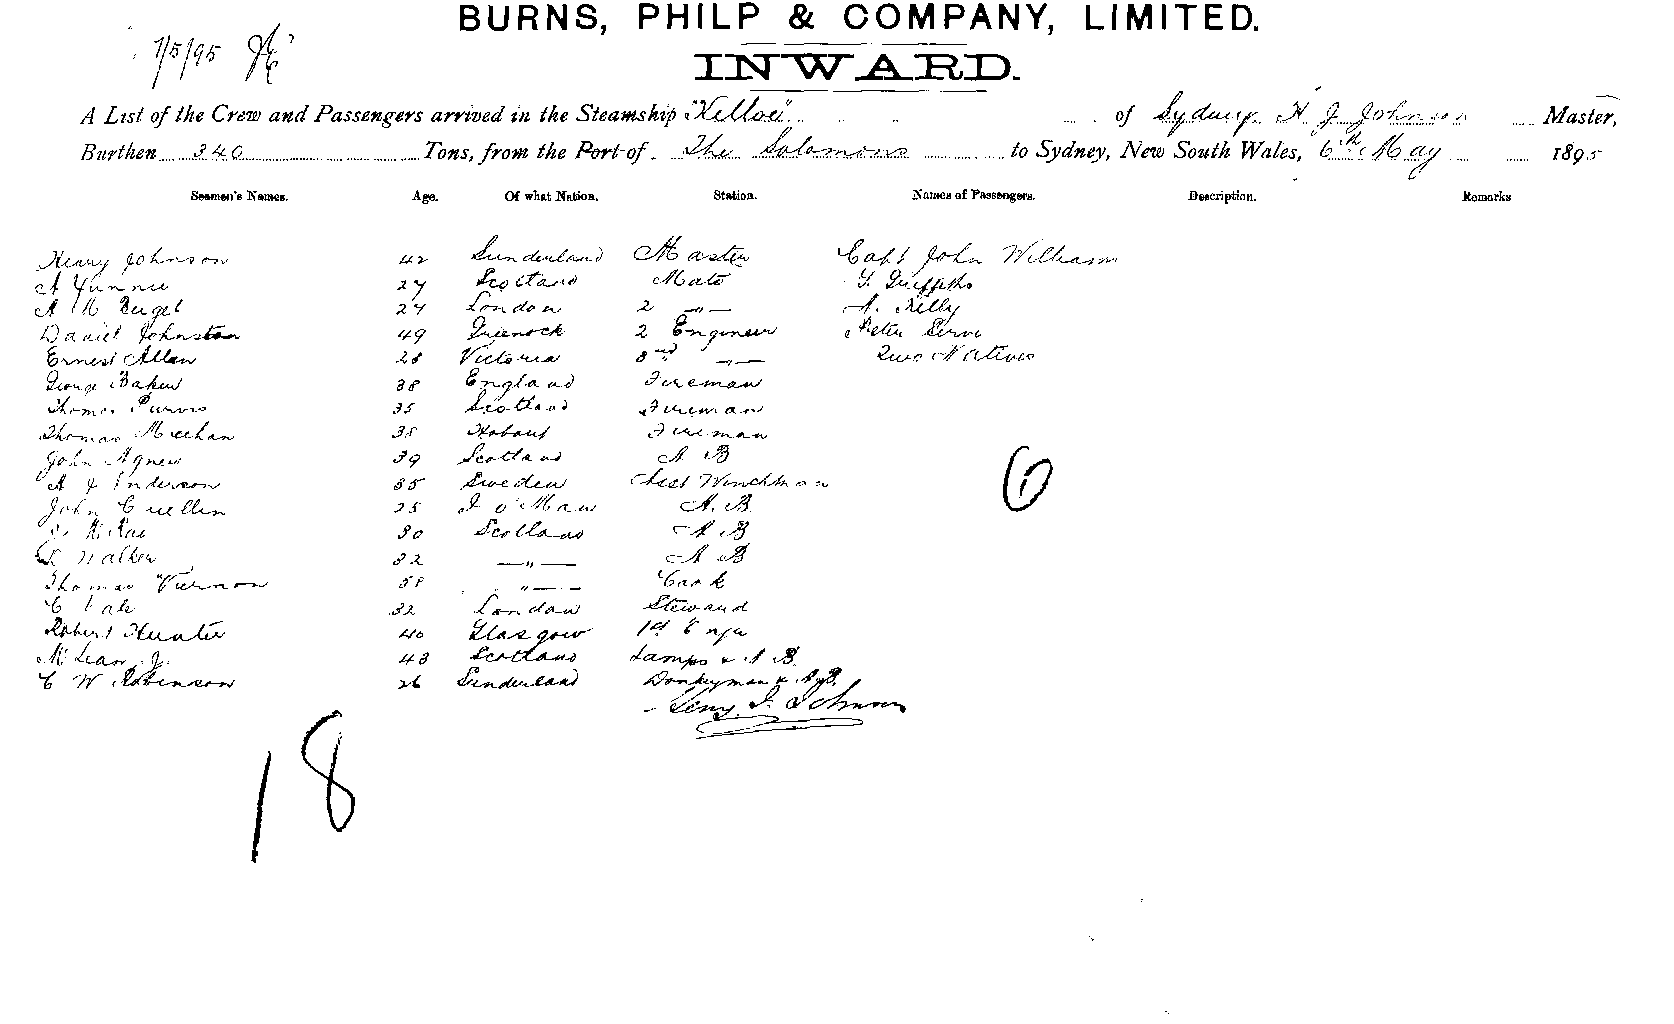 BURNS, PHILP & COMPANY, LIMITED.
7/5/95
INWARD.
A List of the Crew and Passengers arrived in the Steamship "Kelloe" of Sydney H J Johnson Master,
Burthen 340 Tons, from the Port of The Solomons to Sydney, New South Wales, 6th May 1895
Seamen's Names. Age. Of what Nation. Station. Names of Passengers. Description. Remarks
Henry Johnson 42 Sunderland Master Capt John William
A 27 Scotland Mate Griffiths
A 27 London 2 -"- A. Kelly
Daniel Johnston 49 Greenock 2 Engineer Peter
Ernest Allan 28 Victoria 3rd -"- Two Natives
George Baker 38 England Fireman
Thomas Purvis 35 Scotland Fireman
Thomas Meehan 38 Hobart Fireman
John Agnew 39 Scotland A B
A J Anderson 35 Sweden Winchman
John Cuellin 25 I o' Man A. B.
McRae 30 Scotland A B
Walker 32 -"- A B
Thomas Vernon 58 -"- Cook
C 32 London Steward
Robert Hunter 40 Glasgow 1st Engr
McLean J. 43 Scotland Lamps & A B.
C W Robinson 26 Sunderland Donkeyman & A.B.
Heny. J. Johnson
6
18